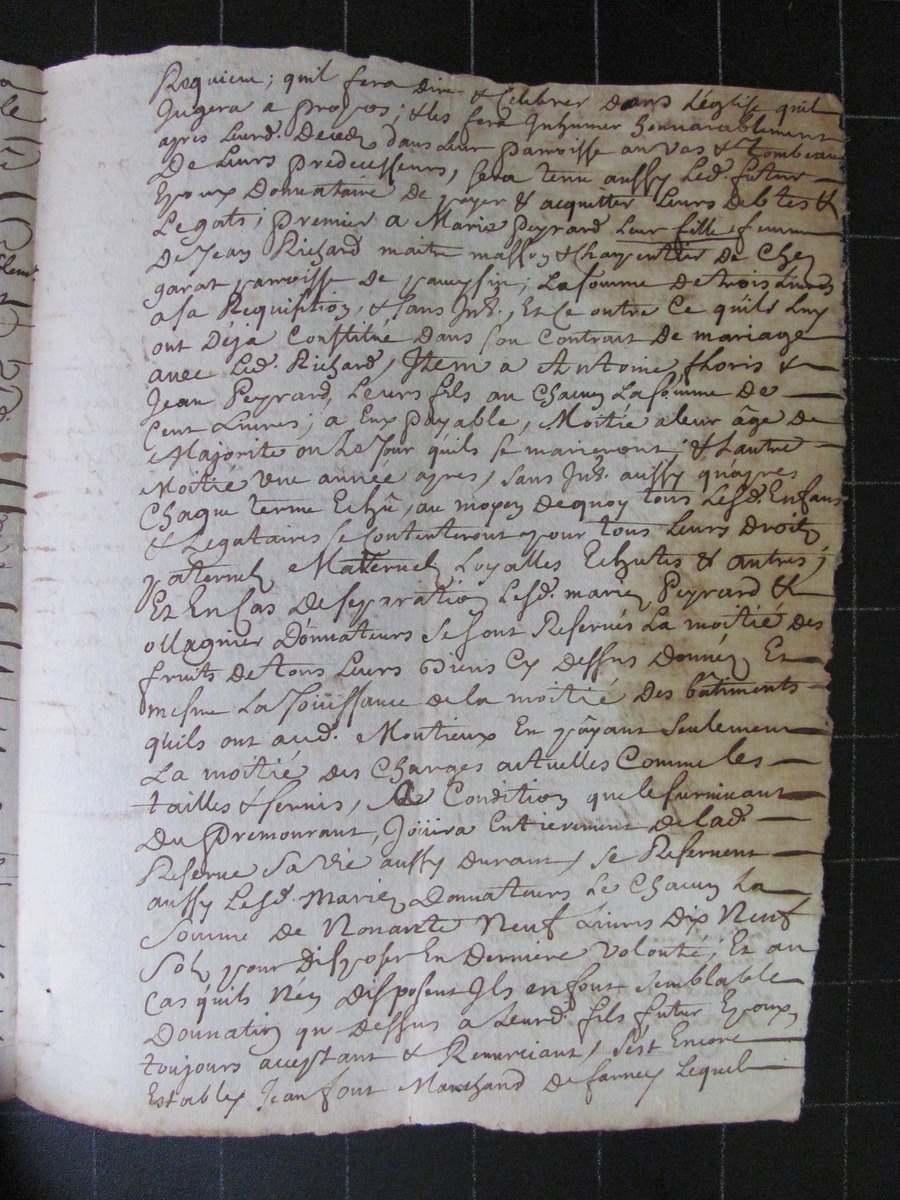 Requiem; quil fera dire & Celebrer dans L'église quil
Jugera a propos; & les fera Inhumer honnorablement
apres Leurd. Deceds dans Leur parroisse au vas & Tombeaux
De Leurs predecesseurs, sera tenu aussy Led. futur
Epoux Donnataire De payer & acquitter Leurs Debtes &
Legats; premier a Marie Peyrard Leur fille femme
De Jean Richard maitre masson & Charpentier De
garat parroisse De La somme de trois Livres
a sa Requisition, & sans Int., Et Ce outre Ce quils Luy
ont Déja Constitué Dans son Contrat De mariage
avec Led. Richard, Item a Antoine, floris &
Jean Peyrard, Leurs fils au Chacun La somme De
Cent Livres; a Eux payable, Moitié a leur âge De
Majorite ou Le Jour quils se marieront; & L'autre
Moitié une année apres, sans Int. aussy qu'apres
Chaque terme Echû, au moyen Dequoy tous Lesd. Enfans
& Legataires se Contenteront pour tous Leurs Droits
paternels Maternels Loyalles Echutes & autres;
Et En Cas De separation Lesd. mariez Peyrard &
ollagnier Donnateurs se sont Reservés La moitié Des
fruits De tous Leurs Biens Cy Dessus Donnez Et
mesme La Joüissance de la moitié Des bâtiments
quils ont aud. Montieux En pâyant seulement
La moitié Des Charges actuelles Comme les
tailles & servis, A Condition que le surviuant
Du premourant, Joüira Entierement De lad.
Reserve sa vie aussy Durant, se Reservent
aussy Lesd. Mariez Donnateurs Le Chacun La
Somme De Nonante Neuf Livres Dix Neuf
Sols pour Disposer En Derniere volonté; Et au
Cas quils N'en Disposent Ils en font semblable
Donnation que Dessus a Leurd. fils futur Epoux,
toujours aceptant & Remerciant, S'est Encore
Estably Jean font Marchand De farney Lequel